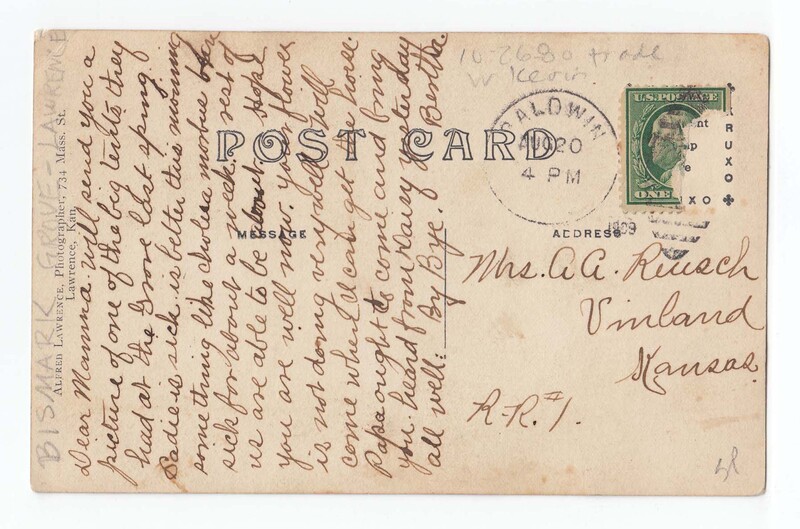 BISMARK GROVE - LAWRENCE
ALFRED LAWRENCE, Photographer, 734 Mass. St.
Lawrence, Kan.
10-26-80 trade
w Kevin
POST CARD
MESSAGE
ADDRESS
BALDWIN
AUG 20
4 PM
1909
U.S. POSTAGE
ONE
RUXO
XO
Dear Mamma: will send you a
picture of one of the big tents they
had at the Grove last spring.
Sadie is sick is better this morning
something like cholera morbus been
sick for about a week, rest of
us are able to be about hope
you are well now. your flower
is not doing very well. Will
come when I can get the
Papa ought to come and bring
you. heard from Daisy yesterday
all well: By Bye. Bertha
Mrs. A.A. Reusch
Vinland
Kansas
R.R. #1.